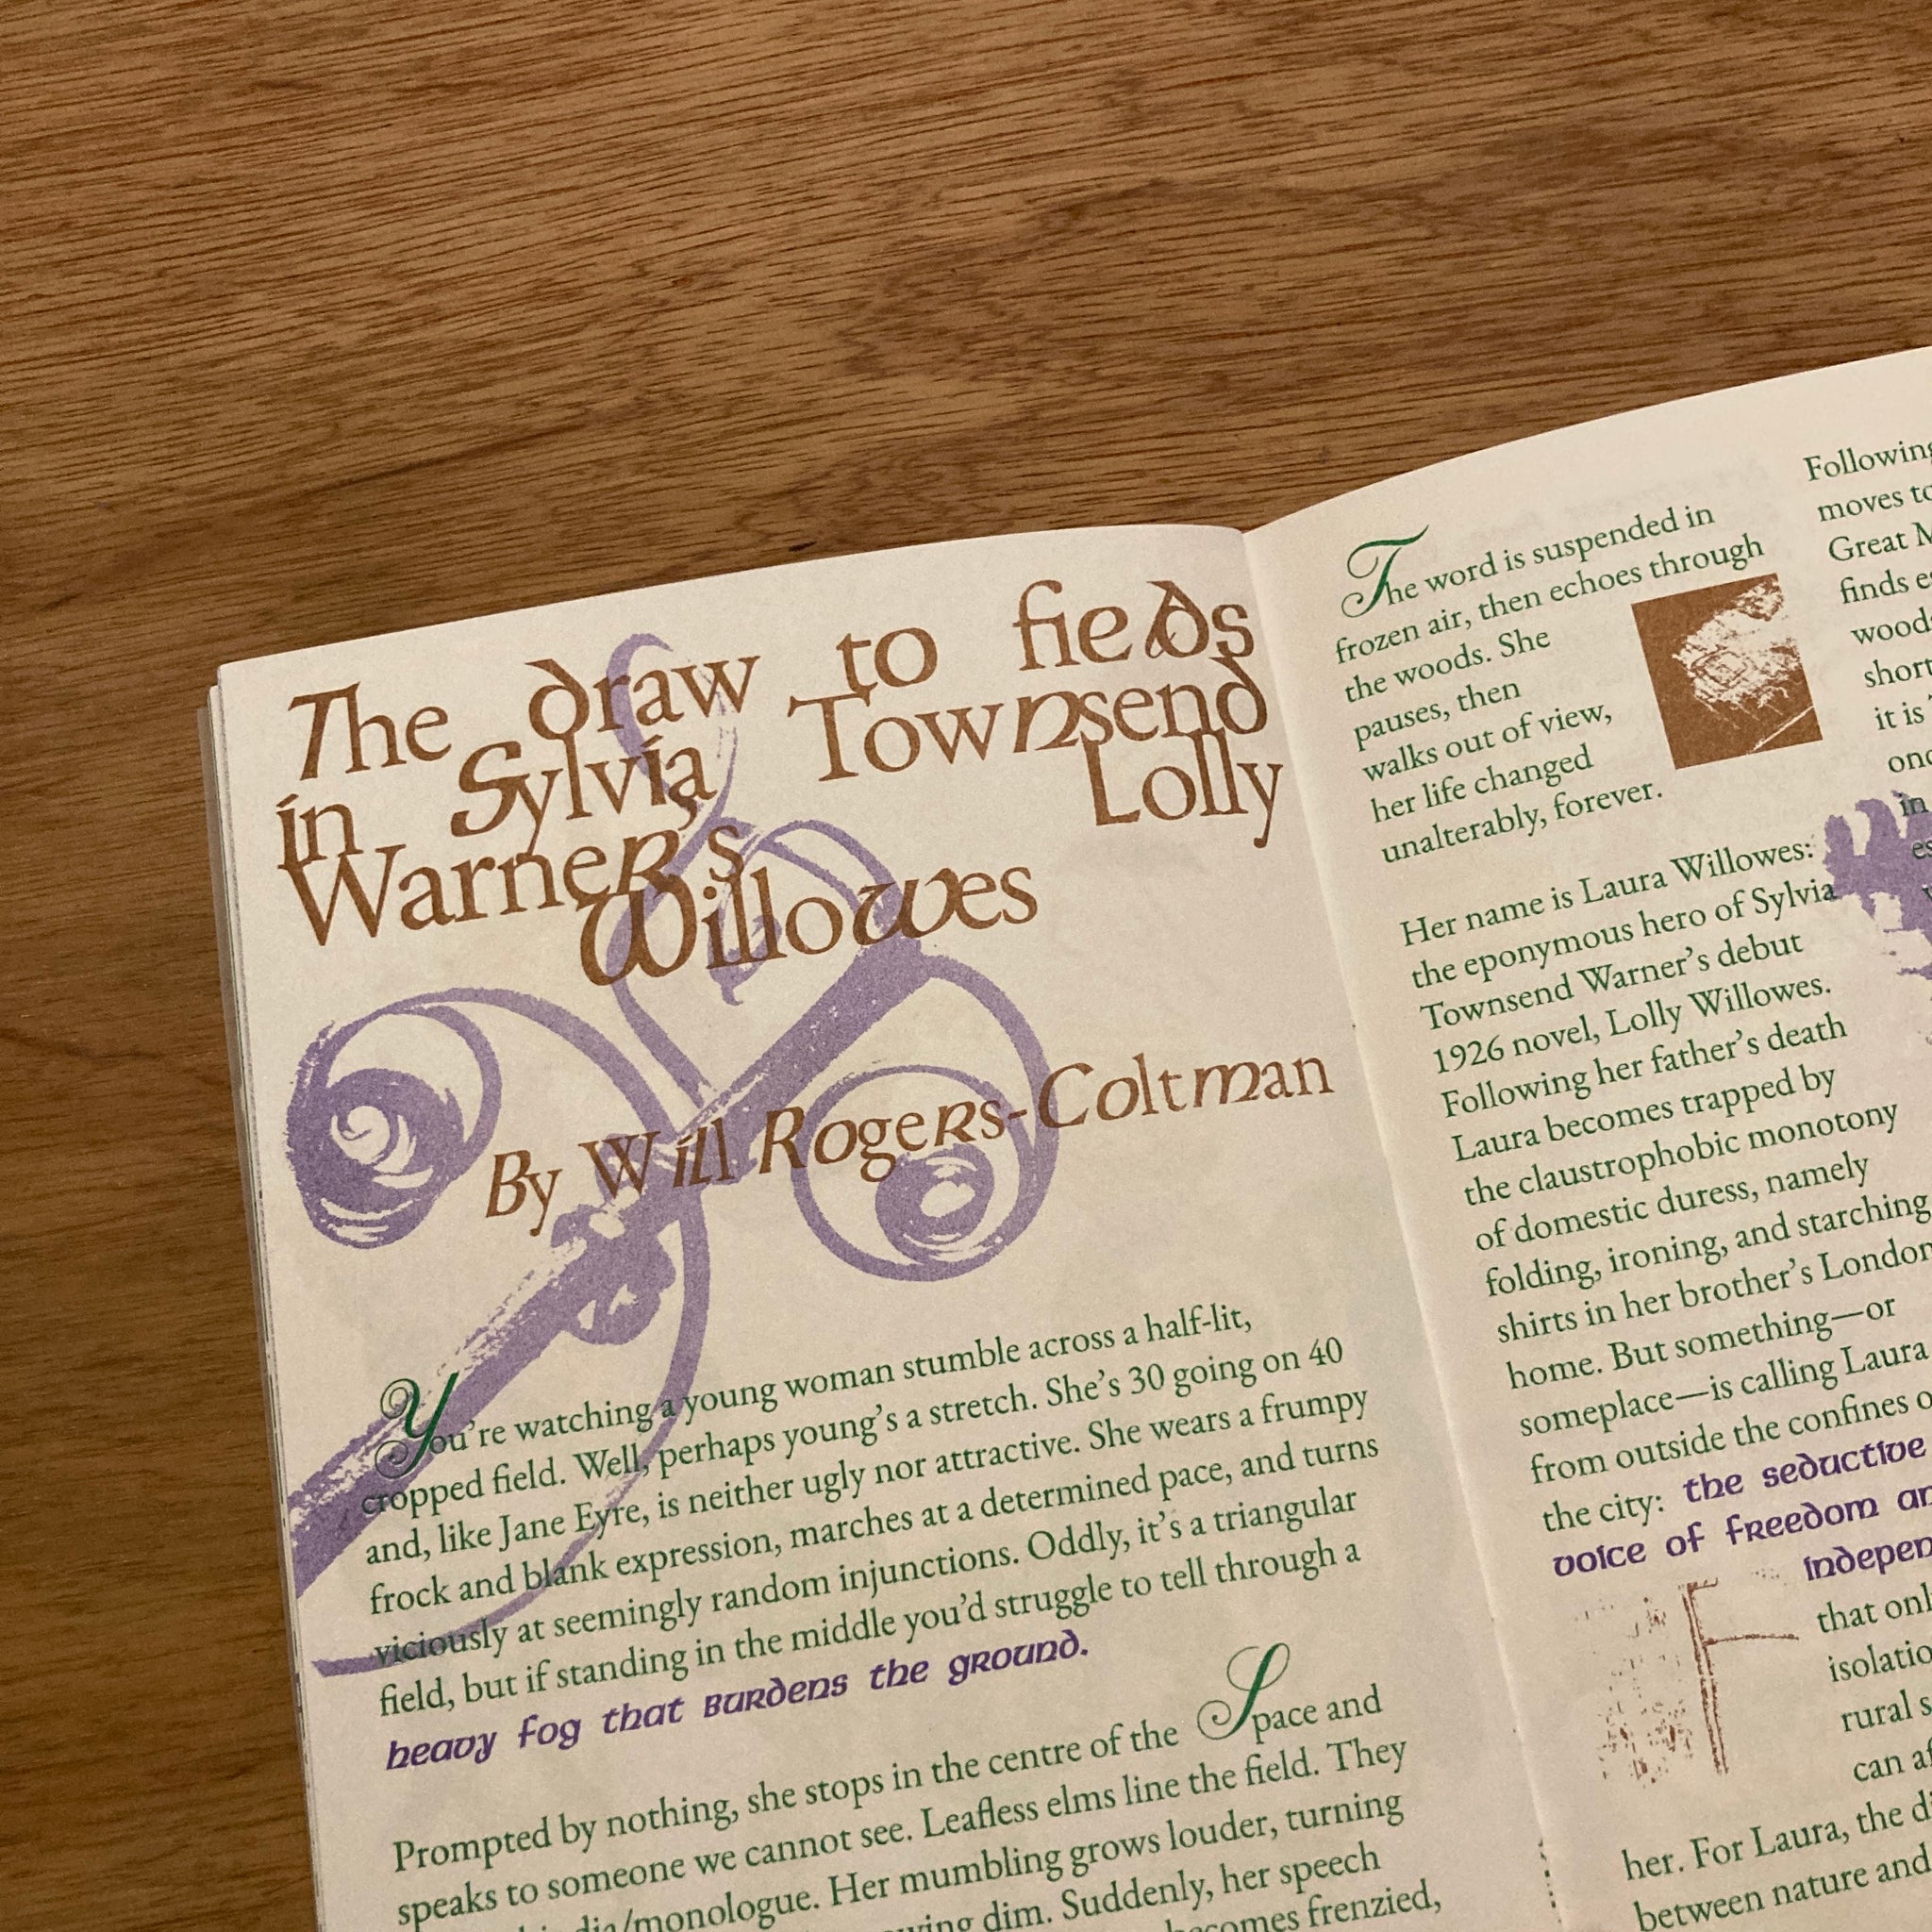 The draw to fieds
in Sylvia Townsend
Warner's Lolly
Willowes
By Will Rogers-Coltman
You're watching a young woman stumble across a half-lit,
cropped field. Well, perhaps young's a stretch. She's 30 going on 40
and, like Jane Eyre, is neither ugly nor attractive. She wears a frumpy
frock and blank expression, marches at a determined pace, and turns
viciously at seemingly random injunctions. Oddly, it's a triangular
field, but if standing in the middle you'd struggle to tell through a
heavy fog that burdens the ground.
Prompted by nothing, she stops in the centre of the Space and
speaks to someone we cannot see. Leafless elms line the field. They
/monologue. Her mumbling grows louder, turning
dim. Suddenly, her speech
becomes frenzied,
The word is suspended in
frozen air, then echoes through
the woods. She
pauses, then
walks out of view,
her life changed
unalterably, forever.
Her name is Laura Willowes:
the eponymous hero of Sylvia
Townsend Warner's debut
1926 novel, Lolly Willowes.
Following her father's death
Laura becomes trapped by
the claustrophobic monotony
of domestic duress, namely
folding, ironing, and starching
shirts in her brother's London
home. But something—or
someplace—is calling Laura
from outside the confines
the city: the seductive
voice of freedom
that
rural
can
her. For Laura, the
between nature and
Following
moves
Great
finds
short
it is
in